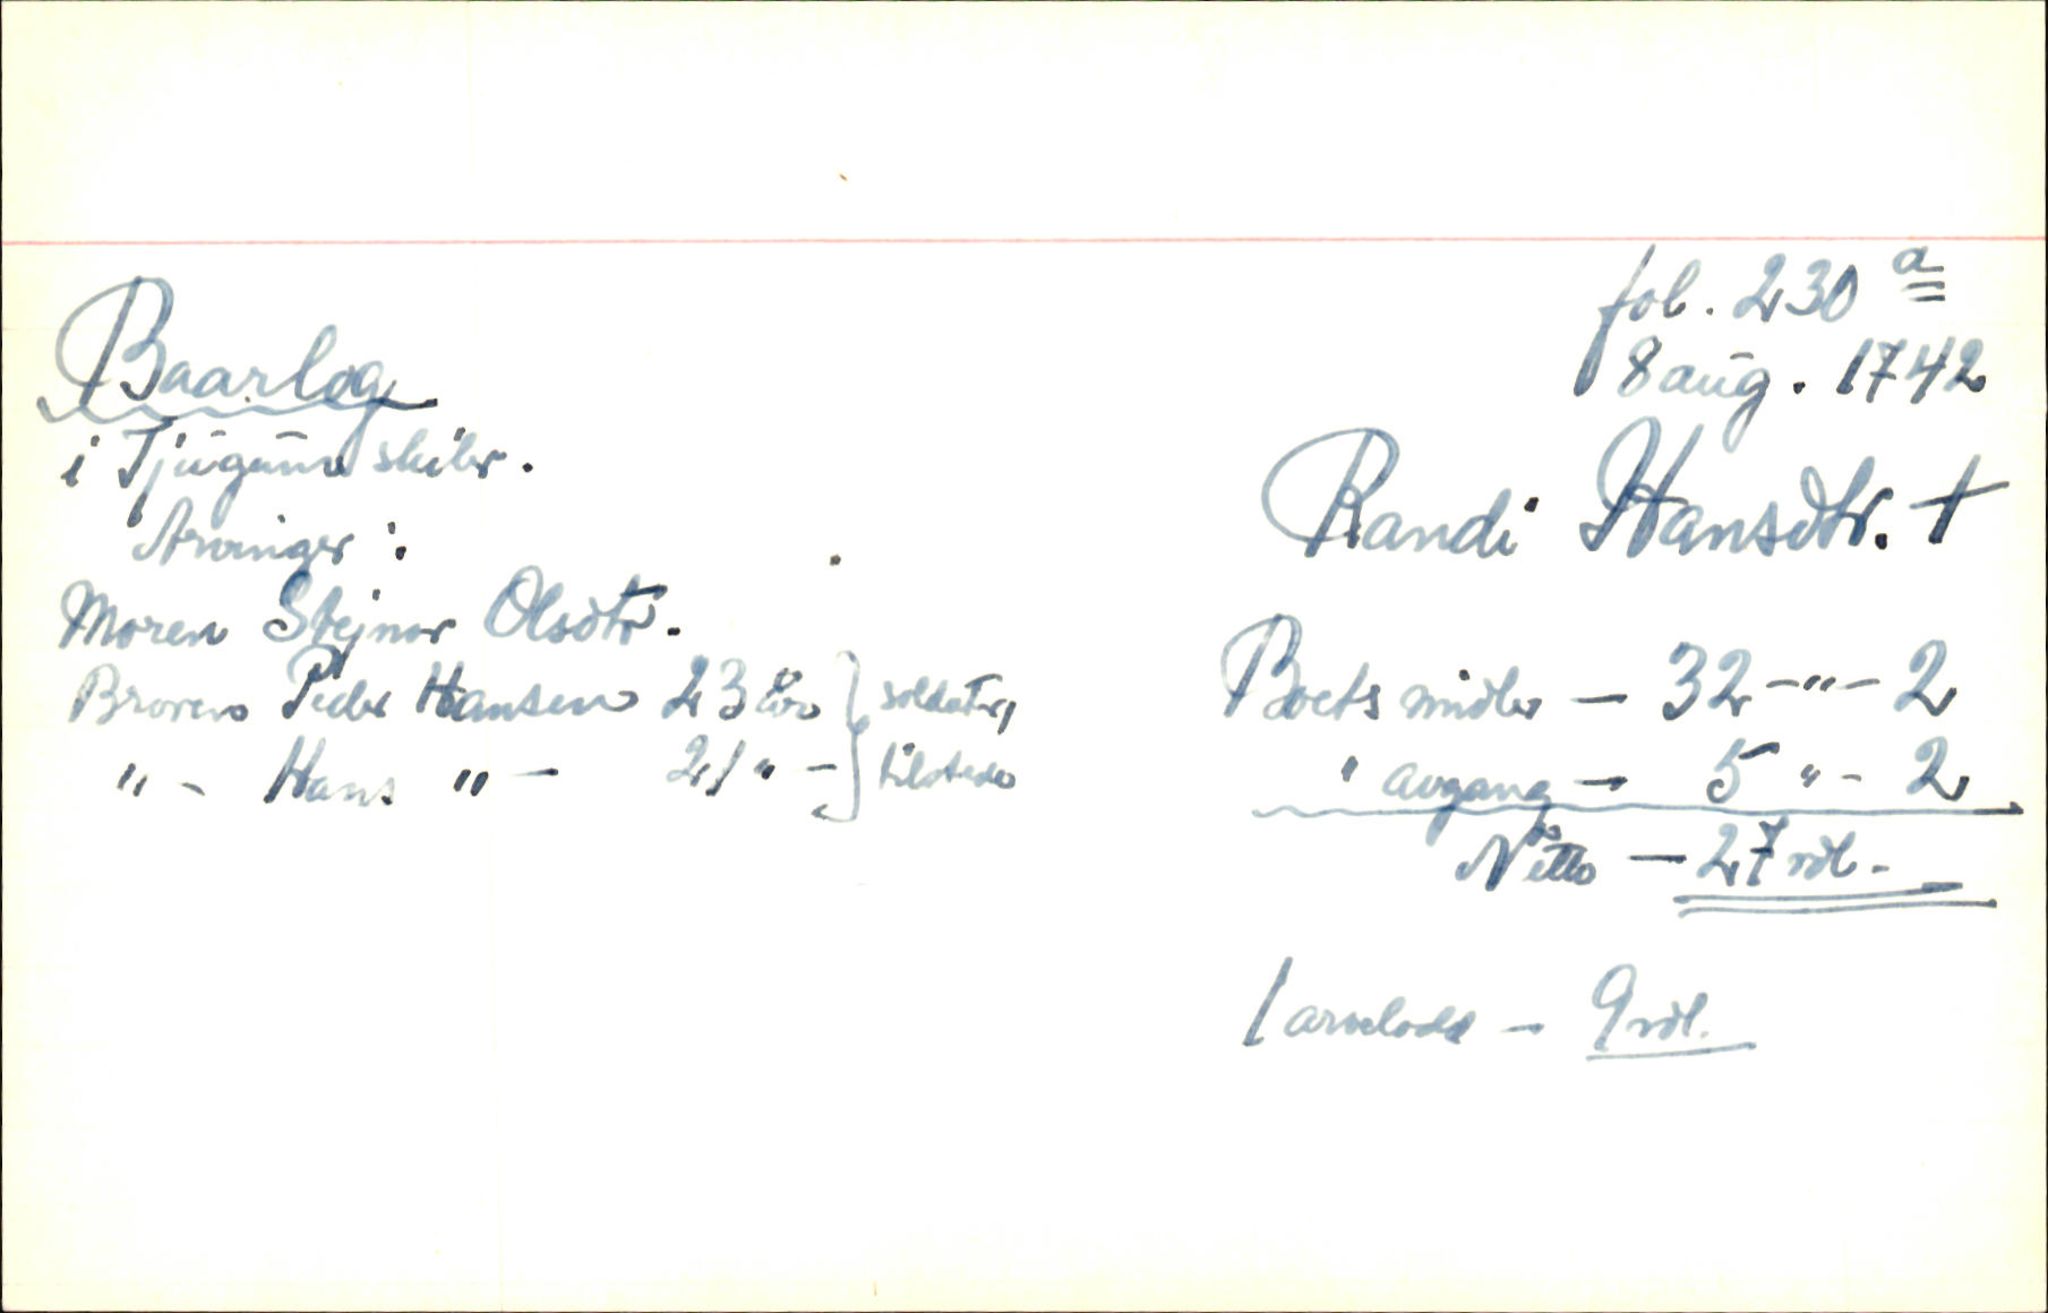 fol. 230 a
8 aug. 1742
Baarlog
i Tjugum skibr.
Randi Hansdtr. +
Arvinger :
Moren Stejnor Olsdtr.
Broren Peder Hansen 23 år } soldater,
" - Hans " - 21 " - } tilstede
Boets midler - 32 - " - 2
" avgang - 5 " - 2
Netto - 27 rdl.
1 arvelodd - 9 rdl.